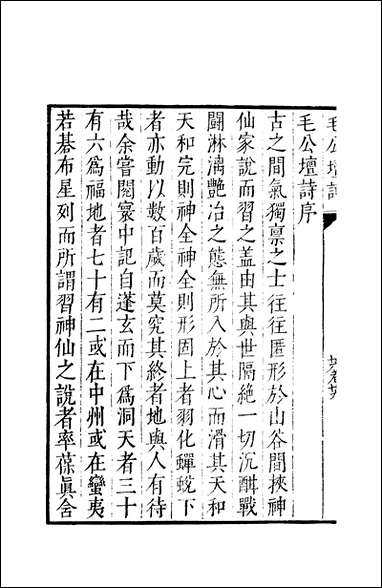 毛公壇詩
毛公壇詩序
古之間氣獨禀之士往往匿形於山谷間挾神
仙家說而習之盖由其與世隔絶一切沉酣戰
鬭淋漓艷冶之態無所入於其心而滑其天和
天和完則神全神全則形固上者羽化蟬蛻下
者亦動以數百歲而莫究其終者地與人有待
哉余嘗閱寰中記自蓬玄而下爲洞天者三十
有六爲福地者七十有二或在中州或在蠻夷
若碁布星列而所謂習神仙之說者率葆眞含